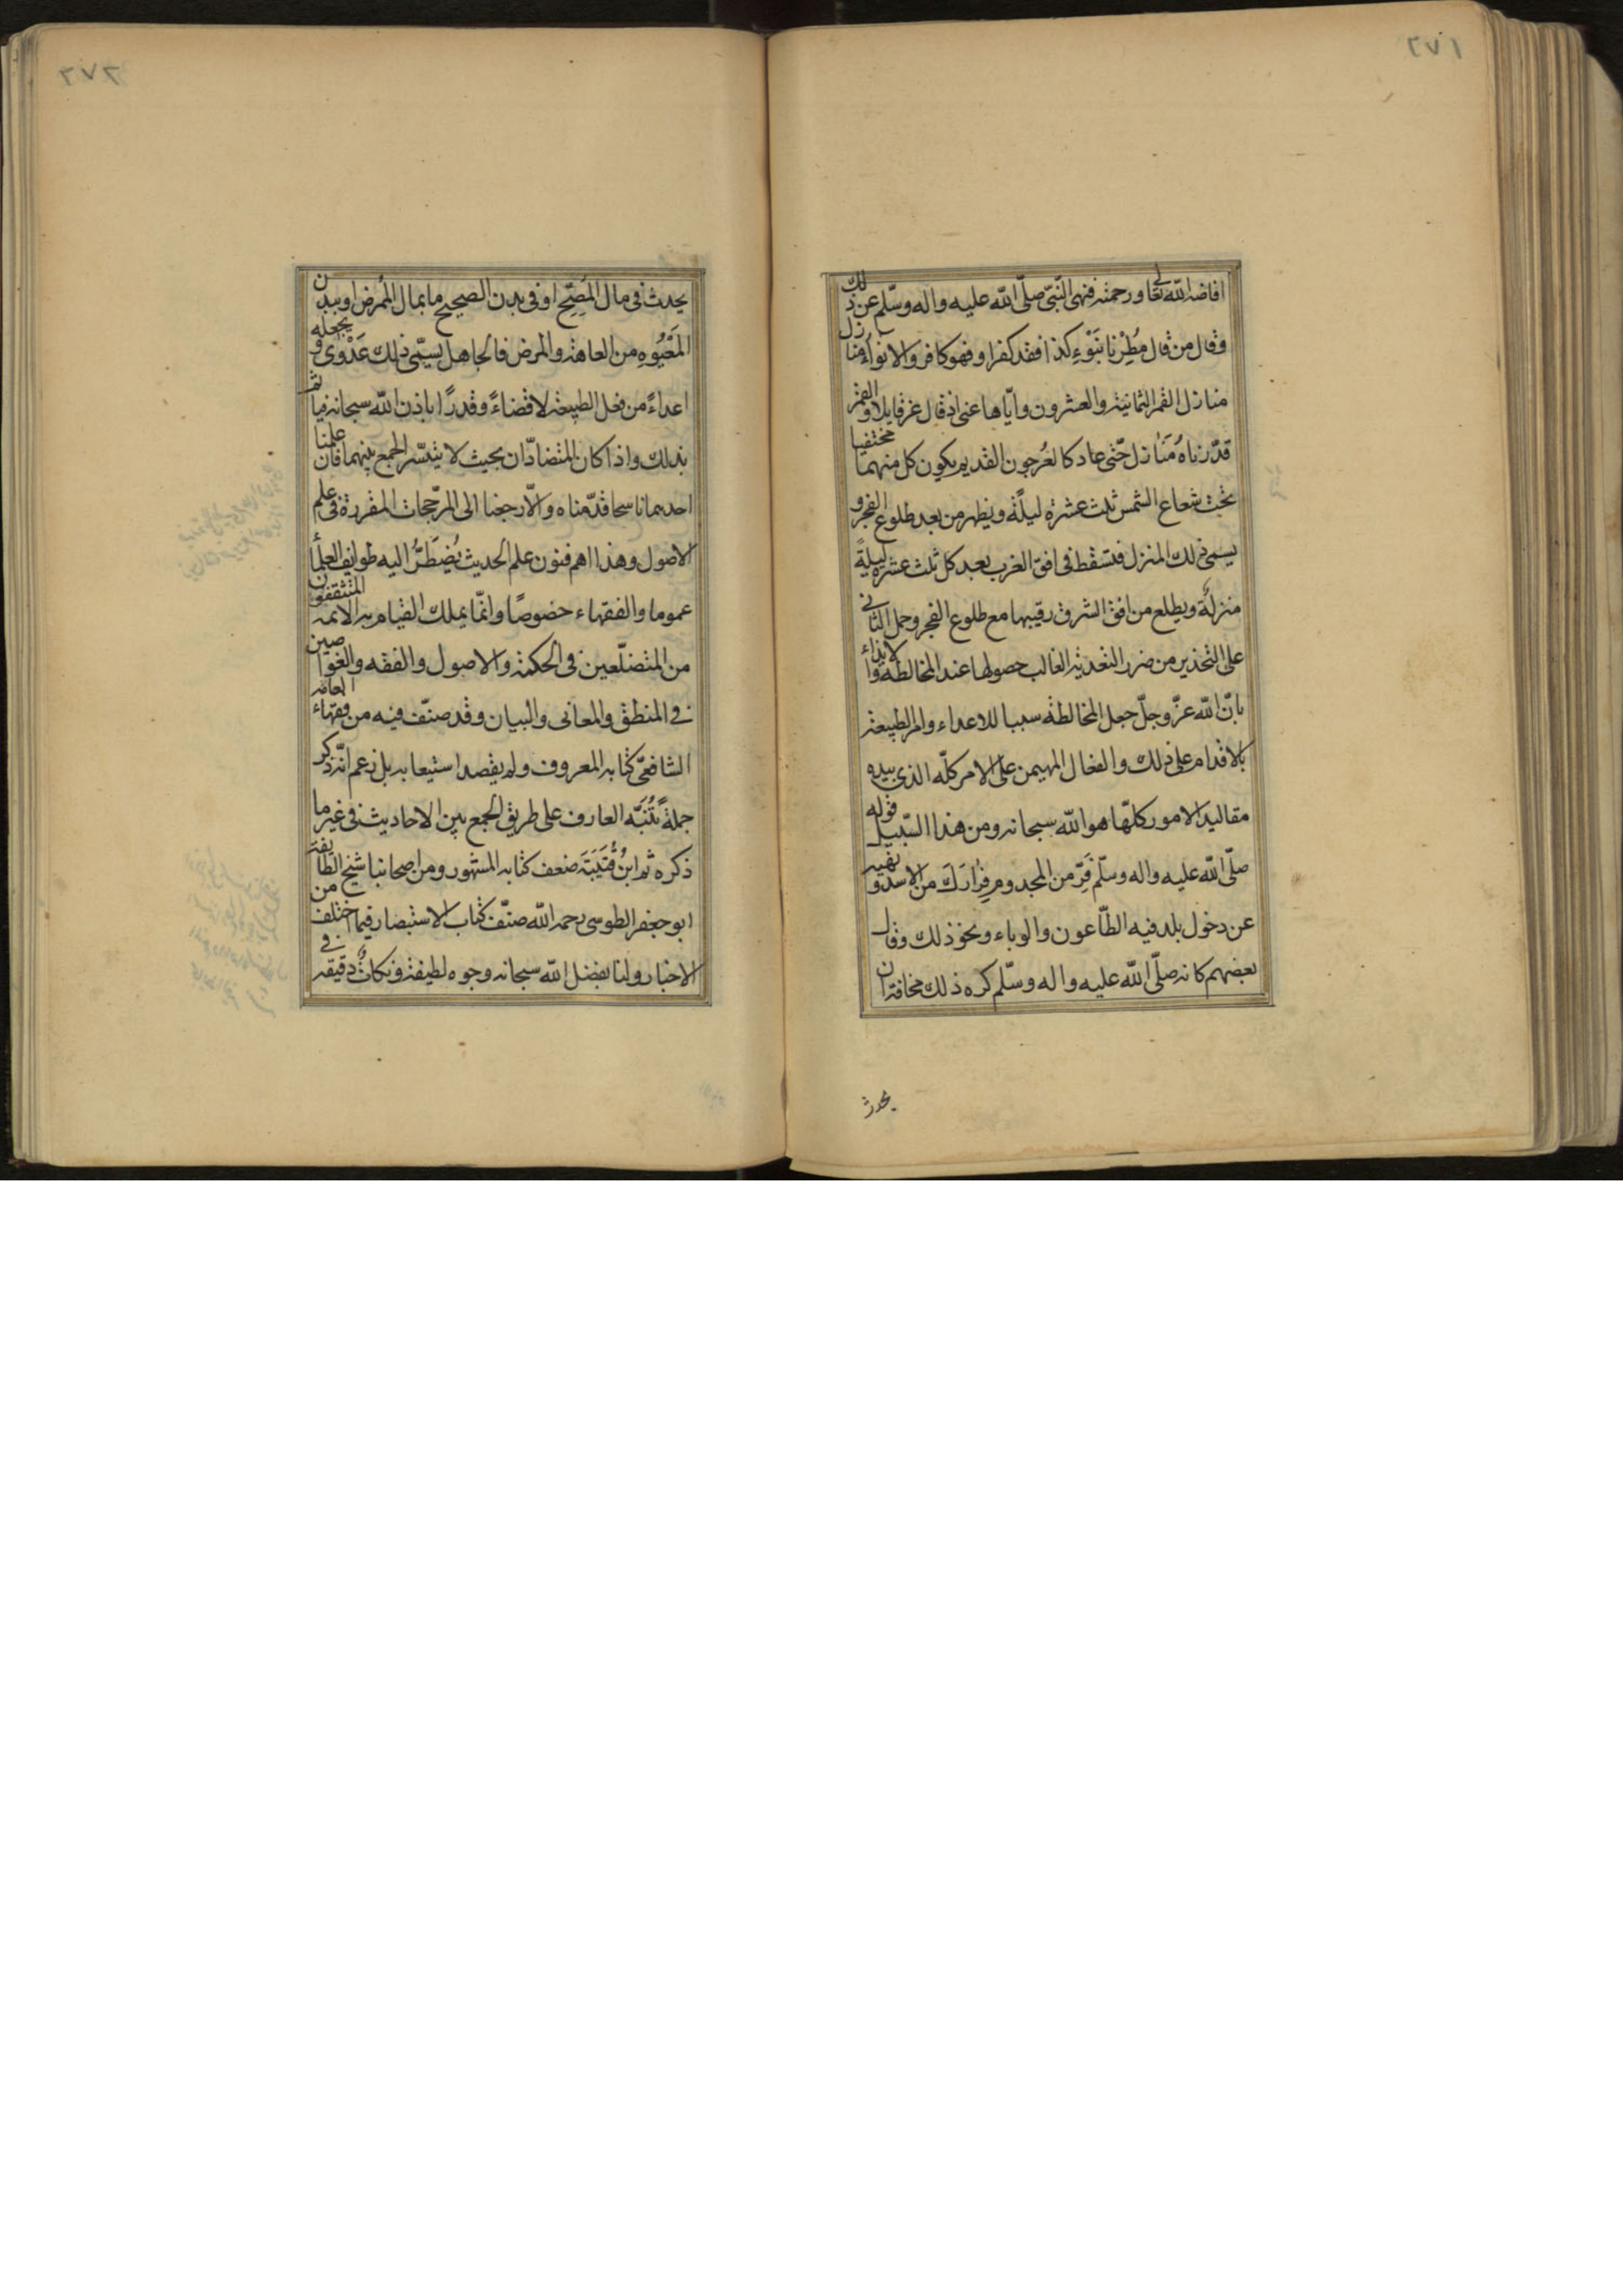 افاضة الله تعالى ورحمته فنهى النبى صلّى الله عليه واله وسلّم عن ذلك
وقال من قال مُطِرْنا بنَوْءِ كذا فقد كفر او فهو كافر والانواء منازل
منازل القمر الثمانية والعشرون وايّاها عنى اذ قال عز قايلا والقمر
قدّرناه مَنازل حتّى عاد كالعُرجون القديم يكون كل منهما مختفيا
تحت شعاع الشمس ثلث عشرة ليلةً ويظهر من بعد طلوع الفجر و
يسمى ذلك المنزل فتسقط فى افق الغرب بعد كل ثلث عشرة ليلةً
منزلةٌ ويطلع من افق الشرق رقيبها مع طلوع الفجر وحمل الثانى
على التحذير من ضرر التعدية الغالب حصولها عند المخالطة والايذاء
بانّ الله عزّ وجلّ جعل المخالطة سببا للاعداء وامر الطبيعة
بالاقدام على ذلك والفعال المهيمن على الامر كلّه الذى بيده
مقاليد الامور كلّها هو الله سبحانه ومن هذا السّبيل قوله
صلّى الله عليه واله وسلّم فِرّ من المجذوم فِرارَكَ من الاسد ونهيه
عن دخول بلد فيه الطّاعون والوباء ونحو ذلك وقال
بعضهم كانه صلّى الله عليه واله وسلّم كره ذلك مخافة ان
يحدث
يحدث فى مال المُصِحّ او فى بدن الصحيح ما بمال المُمرض او ببدن
المَعْيُوهِ من العاهة والمرض فالجاهل يسمّى ذلك عَدْوى ويجعله
اعداءً من فعل الطبيعة لا قضاءً وقدرًا باذن الله سبحانه فياثم
بذلك واذا كان المتضادّان بحيث لا يتيسّر الجمع بينهما فان علمنا
احدهما ناسخا قدّمناه والّا رجعنا الى المرجّحات المقررة فى علم
الاصول وهذا اهم فنون علم الحديث يُضطَرُّ اليه طوايف العلماء
عموما والفقهاء خصوصًا وانّما يملك القيام به الائمه المتثقفون
من المتضلّعين فى الحكمة والاصول والفقه والغواصين
فى المنطق والمعانى والبيان وقد صنّف فيه من فقهاء العامه
الشافعىّ كتابه المعروف ولم يقصد استيعابه بل زعم انّه ذكر
جملةً تُنَبّه العارف على طريق الجمع بين الاحاديث فى غير ما
ذكره ثم ابنُ قُتَيبَةَ ضعف كتابه المشهور ومن اصحابنا شيخ الطايفة
ابو جعفر الطوسى رحمه الله صنّف كتاب الاستبصار فيما اختلف من
الاخبار ولنا بفضل الله سبحانه وجوه لطيفة ونكاتٌ دقيقه فى